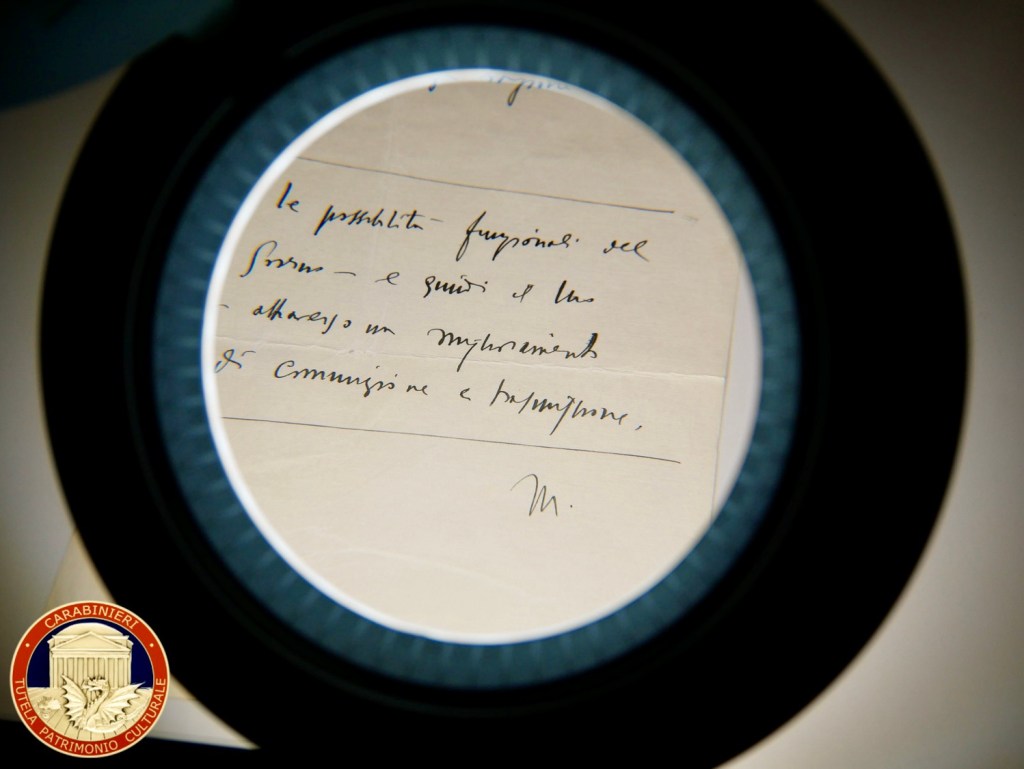 le possibilità funzionali del
Governo — e quindi il suo
- attraverso un miglioramento
di comunizione e trasmissione.
M.
CARABINIERI
TUTELA PATRIMONIO CULTURALE